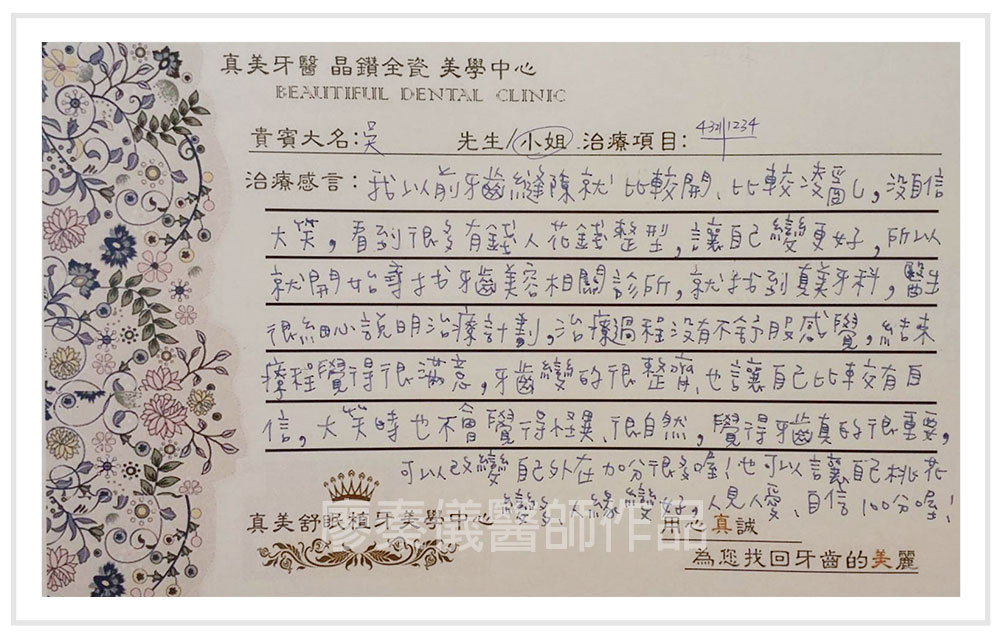 真美牙醫 晶鑽全瓷 美學中心
BEAUTIFUL DENTAL CLINIC
貴賓大名:吳 先生/小姐 治療項目: 4321|1234
治療感言:我以前牙齒縫隙就比較開、比較凌亂,沒自信
大笑,看到很多有錢人花錢整型,讓自己變更好,所以
就開始尋找牙齒美容相關診所,就找到真美牙科,醫生
很細心說明治療計劃,治療過程沒有不舒服感覺,結束
療程覺得很滿意,牙齒變的很整齊,也讓自己比較有自
信,大笑時也不會覺得怪異、很自然,覺得牙齒真的很重要,
可以改變自己外在加分很多喔!也可以讓自己桃花
變多、人緣變好,人見人愛、自信100分喔!
真美舒眠植牙美學中心 用心真誠
廖素儀醫師作品
為您找回牙齒的美麗